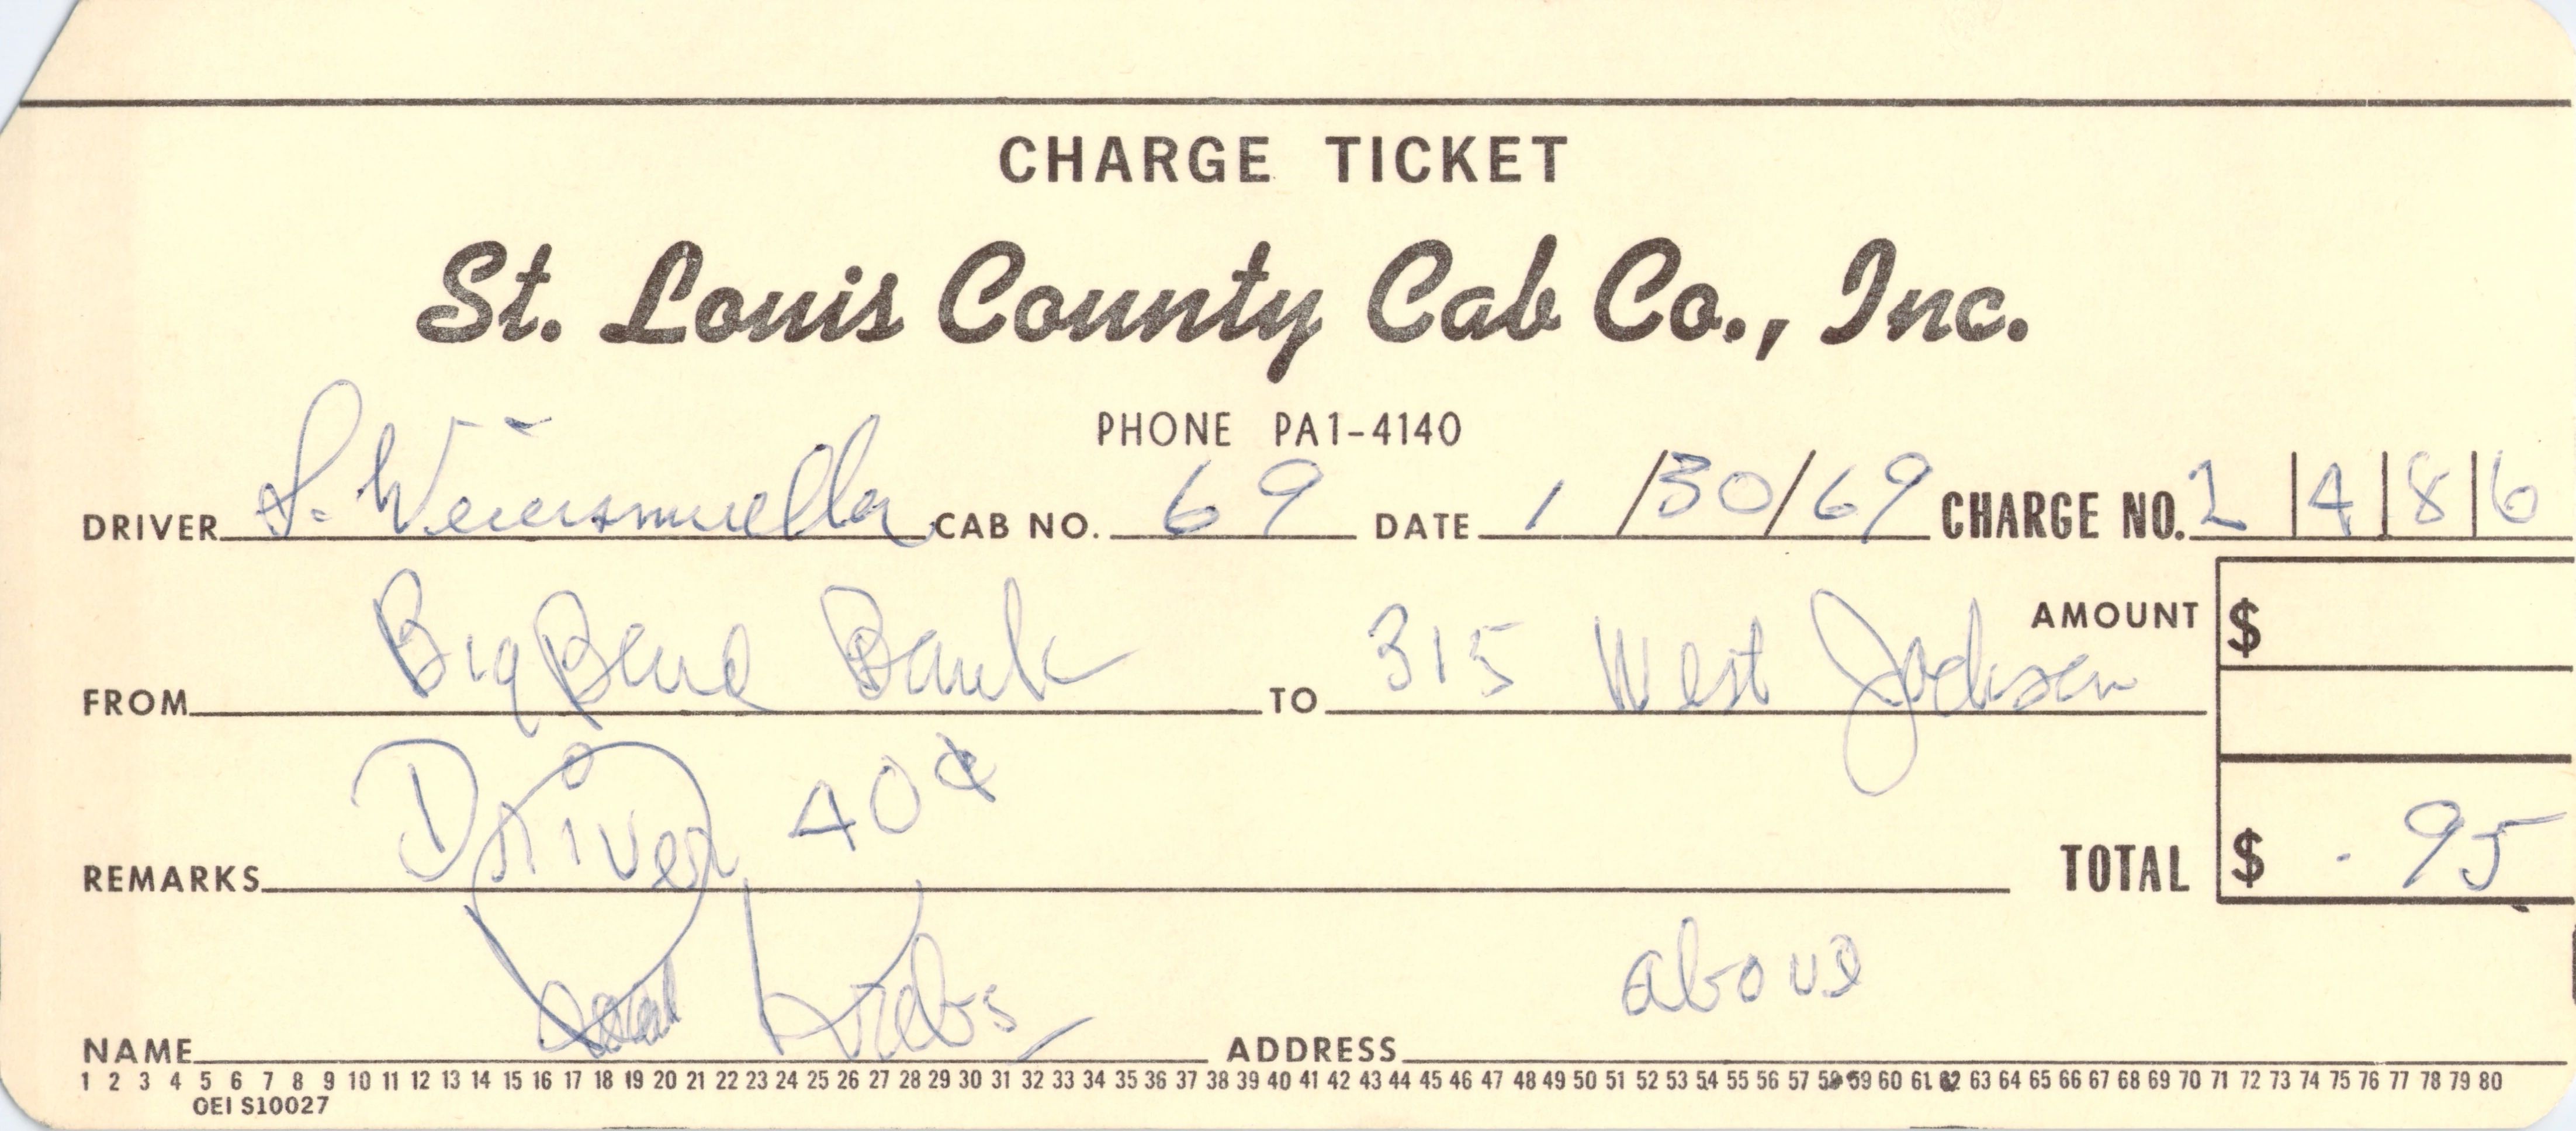 CHARGE TICKET
St. Louis County Cab Co., Inc.
PHONE PA1-4140
DRIVER CAB NO. 69 DATE 1/30/69 CHARGE NO. 2|4|8|6
FROM Big Bend Bank TO 315 West Jackson AMOUNT $
REMARKS Driver 40¢ TOTAL $ .95
NAME Krebs ADDRESS above
1 2 3 4 5 6 7 8 9 10 11 12 13 14 15 16 17 18 19 20 21 22 23 24 25 26 27 28 29 30 31 32 33 34 35 36 37 38 39 40 41 42 43 44 45 46 47 48 49 50 51 52 53 54 55 56 57 58 59 60 61 62 63 64 65 66 67 68 69 70 71 72 73 74 75 76 77 78 79 80
OEI S10027